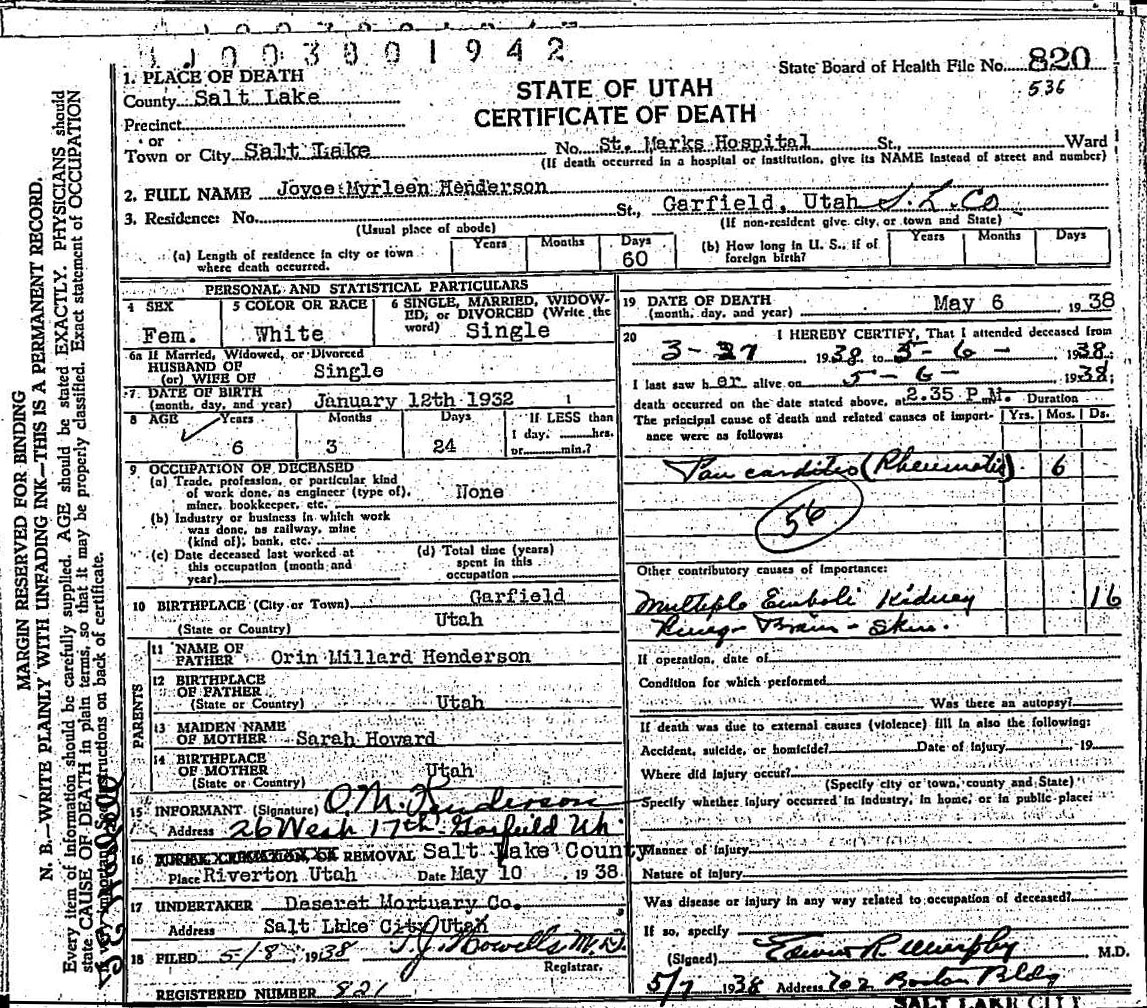 1 1 0 0 3 8 0 1 9 4 2
State Board of Health File No. 820
536
STATE OF UTAH
CERTIFICATE OF DEATH
1. PLACE OF DEATH
County Salt Lake
Precinct
or
Town or City Salt Lake No. St. Marks Hospital St., Ward
(If death occurred in a hospital or institution, give its NAME instead of street and number)
2. FULL NAME Joyce Myrleen Henderson
3. Residence: No. St., Garfield, Utah S. L. Co
(Usual place of abode) (If non-resident give city, or town and State)
(a) Length of residence in city or town where death occurred. Years Months Days 60
(b) How long in U. S., if of foreign birth? Years Months Days
PERSONAL AND STATISTICAL PARTICULARS
4 SEX Fem.
5 COLOR OR RACE White
6 SINGLE, MARRIED, WIDOWED, or DIVORCED (Write the word) Single
6a If Married, Widowed, or Divorced
HUSBAND OF
(or) WIFE OF Single
7 DATE OF BIRTH
(month, day, and year) January 12th 1932
8 AGE Years Months Days If LESS than
6 3 24 1 day, hrs.
or min.?
9 OCCUPATION OF DECEASED
(a) Trade, profession, or particular kind
of work done, as engineer (type of),
miner, bookkeeper, etc. None
(b) Industry or business in which work
was done, as railway, mine
(kind of), bank, etc.
(c) Date deceased last worked at
this occupation (month and
year)
(d) Total time (years)
spent in this
occupation
10 BIRTHPLACE (City or Town) Garfield
(State or Country) Utah
PARENTS
11 NAME OF
FATHER Orin Millard Henderson
12 BIRTHPLACE
OF FATHER
(State or Country) Utah
13 MAIDEN NAME
OF MOTHER Sarah Howard
14 BIRTHPLACE
OF MOTHER
(State or Country) Utah
15 INFORMANT (Signature) O M. Henderson
Address 26 West 17th Garfield Ut.
16 BURIAL, CREMATION, OR REMOVAL Salt Lake County
Place Riverton Utah Date May 10 1938
17 UNDERTAKER Deseret Mortuary Co.
Address Salt Lake City Utah
18 FILED 5-/8 1938 T. J. Howells M.D.
Registrar.
REGISTERED NUMBER 821
19 DATE OF DEATH
(month, day, and year) May 6 1938
20 I HEREBY CERTIFY, That I attended deceased from
3-27 1938 to 5-6- 1938;
I last saw her alive on 5-6- 1938;
death occurred on the date stated above, at 2.35 P.M.
Duration
The principal cause of death and related causes of importance were as follows: Yrs. Mos. Ds.
Pan carditis (Rheumatic) 6
56
Other contributory causes of importance:
Multiple Emboli Kidney 16
Brain - Skin.
If operation, date of
Condition for which performed
Was there an autopsy?
If death was due to external causes (violence) fill in also the following:
Accident, suicide, or homicide? Date of injury 19
Where did injury occur?
(Specify city or town, county and State)
Specify whether injury occurred in industry, in home, or in public place:
Manner of injury
Nature of injury
Was disease or injury in any way related to occupation of deceased?
If so, specify
(Signed) Edwin R. Murphy M.D.
5/7 1938 Address 702 Boston Bldg
SALT LAKE CITY
MARGIN RESERVED FOR BINDING
N. B.—WRITE PLAINLY WITH UNFADING INK—THIS IS A PERMANENT RECORD.
Every item of information should be carefully supplied. AGE should be stated EXACTLY. PHYSICIANS should
state CAUSE OF DEATH in plain terms, so that it may be properly classified. Exact statement of OCCUPATION
is very important. See instructions on back of certificate.